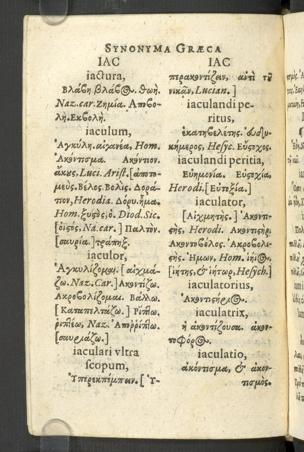 SYNONYMA GRÆCA
IAC
iactura,
Βλάβη βλάβ⊙. θωή.
Naz. car. Ζημία. Ἀποβο-
λή. Ἐκβολή.
iaculum,
Ἀγκύλη. αἰγανέα, Hom.
Ἀκόντισμα. Ἀκόντιον.
ἄκυς, Luci. Arist. [ἀποτο-
μεύς. Βέλος. Βελίς. Δορά-
τιον, Herodia. Δόρυ. ἧμα,
Hom. ξυςὸς, ὁ. Diod. Sic.
[ὀϊςὸς, Na. car.] Παλτόν.
[σαυρία.] τράπηξ.
iaculor,
Ἀγκυλίζομαι. [αἰχμά-
ζω. Naz. Car.] Ἀκοντίζω.
Ἀκροβολίζομαι. Βάλλω.
[Καταπελτάζω.] Ρίπτω,
ῥιπτέω, Naz. Ἀπορρίπτω.
[σαυριάζω.]
iaculari vltra
scopum,
Ὑπερεκπέμπειν. [Ὑ-
IAC
περακοντίζειν, ἀντὶ τοῦ
νικᾶν, Lucian.]
iaculandi pe-
ritus,
ἑκατηβελέτης. δυσγυ-
κήμερος, Hesyc. Εὔςοχος.
iaculandi peritia,
Εὐημονία. Εὐςοχία,
Herodi. [Εὐτηξία.]
iaculator,
[Αἰχμητής.] Ἀκοντι-
ςής, Herodi. Ἀκοντιςήρ.
Ἀκοντοβόλος. Ἀκροβολι-
ςής. Ἥμων, Hom. ἰήι⊙.
[ἰήτης, & ἰήτωρ, Hesych.]
iaculatorius,
Ἀκοντιςήρι⊙.
iaculatrix,
ἡ ἀκοντίζουσα. ἀκον-
τοφόρ⊙.
iaculatio,
ἀκόντισμα, & ἀκον-
τισμός.